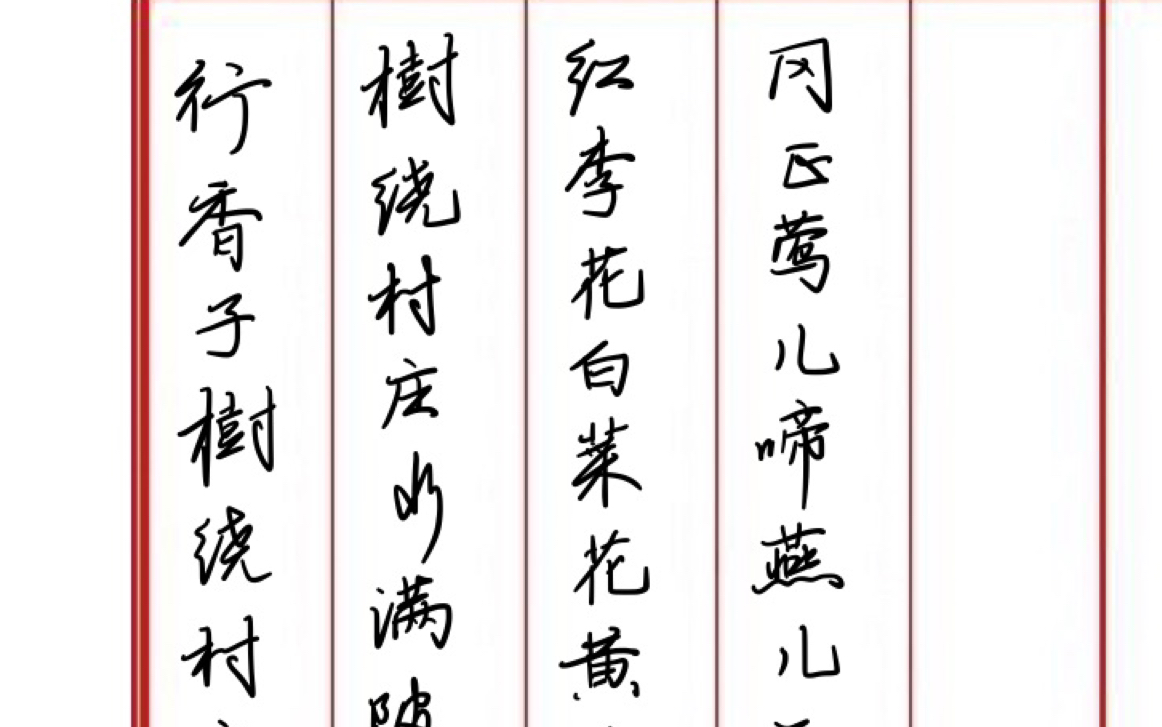 行香子樹绕村
樹绕村庄水满
红李花白菜花黄
冈正莺儿啼燕儿